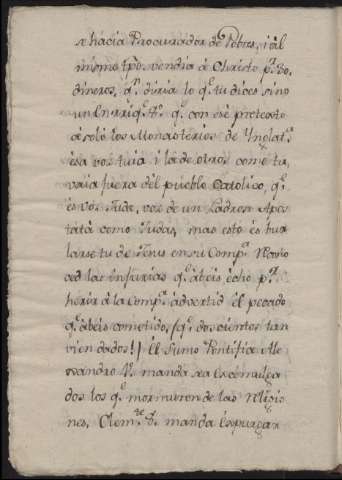 se hacia Procurador de Pobres, i al
mismo tpõ. vendia à Christo pr. 30.
dineros, qn. diria lo qe. tu dices sino
un Enrriqe. 8o. qe. con ese pretexto
asoló los Monasterios de Ynglatra.
esa voz tuia i la de otros como tu,
vaia fuera del pueblo Catolico, qe.
es voz Jude, voz de un Ladron Apos
tata como Judas, mas esto es bur
larse tu de Jesus en su Compa.
sed las Injurias qe. abeis echo pa.
herir à la Compa. advertid el pecado
qe. abeis cometido, (qe. doscientos tan
bien dados!) El Sumo Pontifice Ale
xandro manda sea excomulga
dos los qe. mormuraron de las Religio
nes, Clemte. 8. manda Expurgar